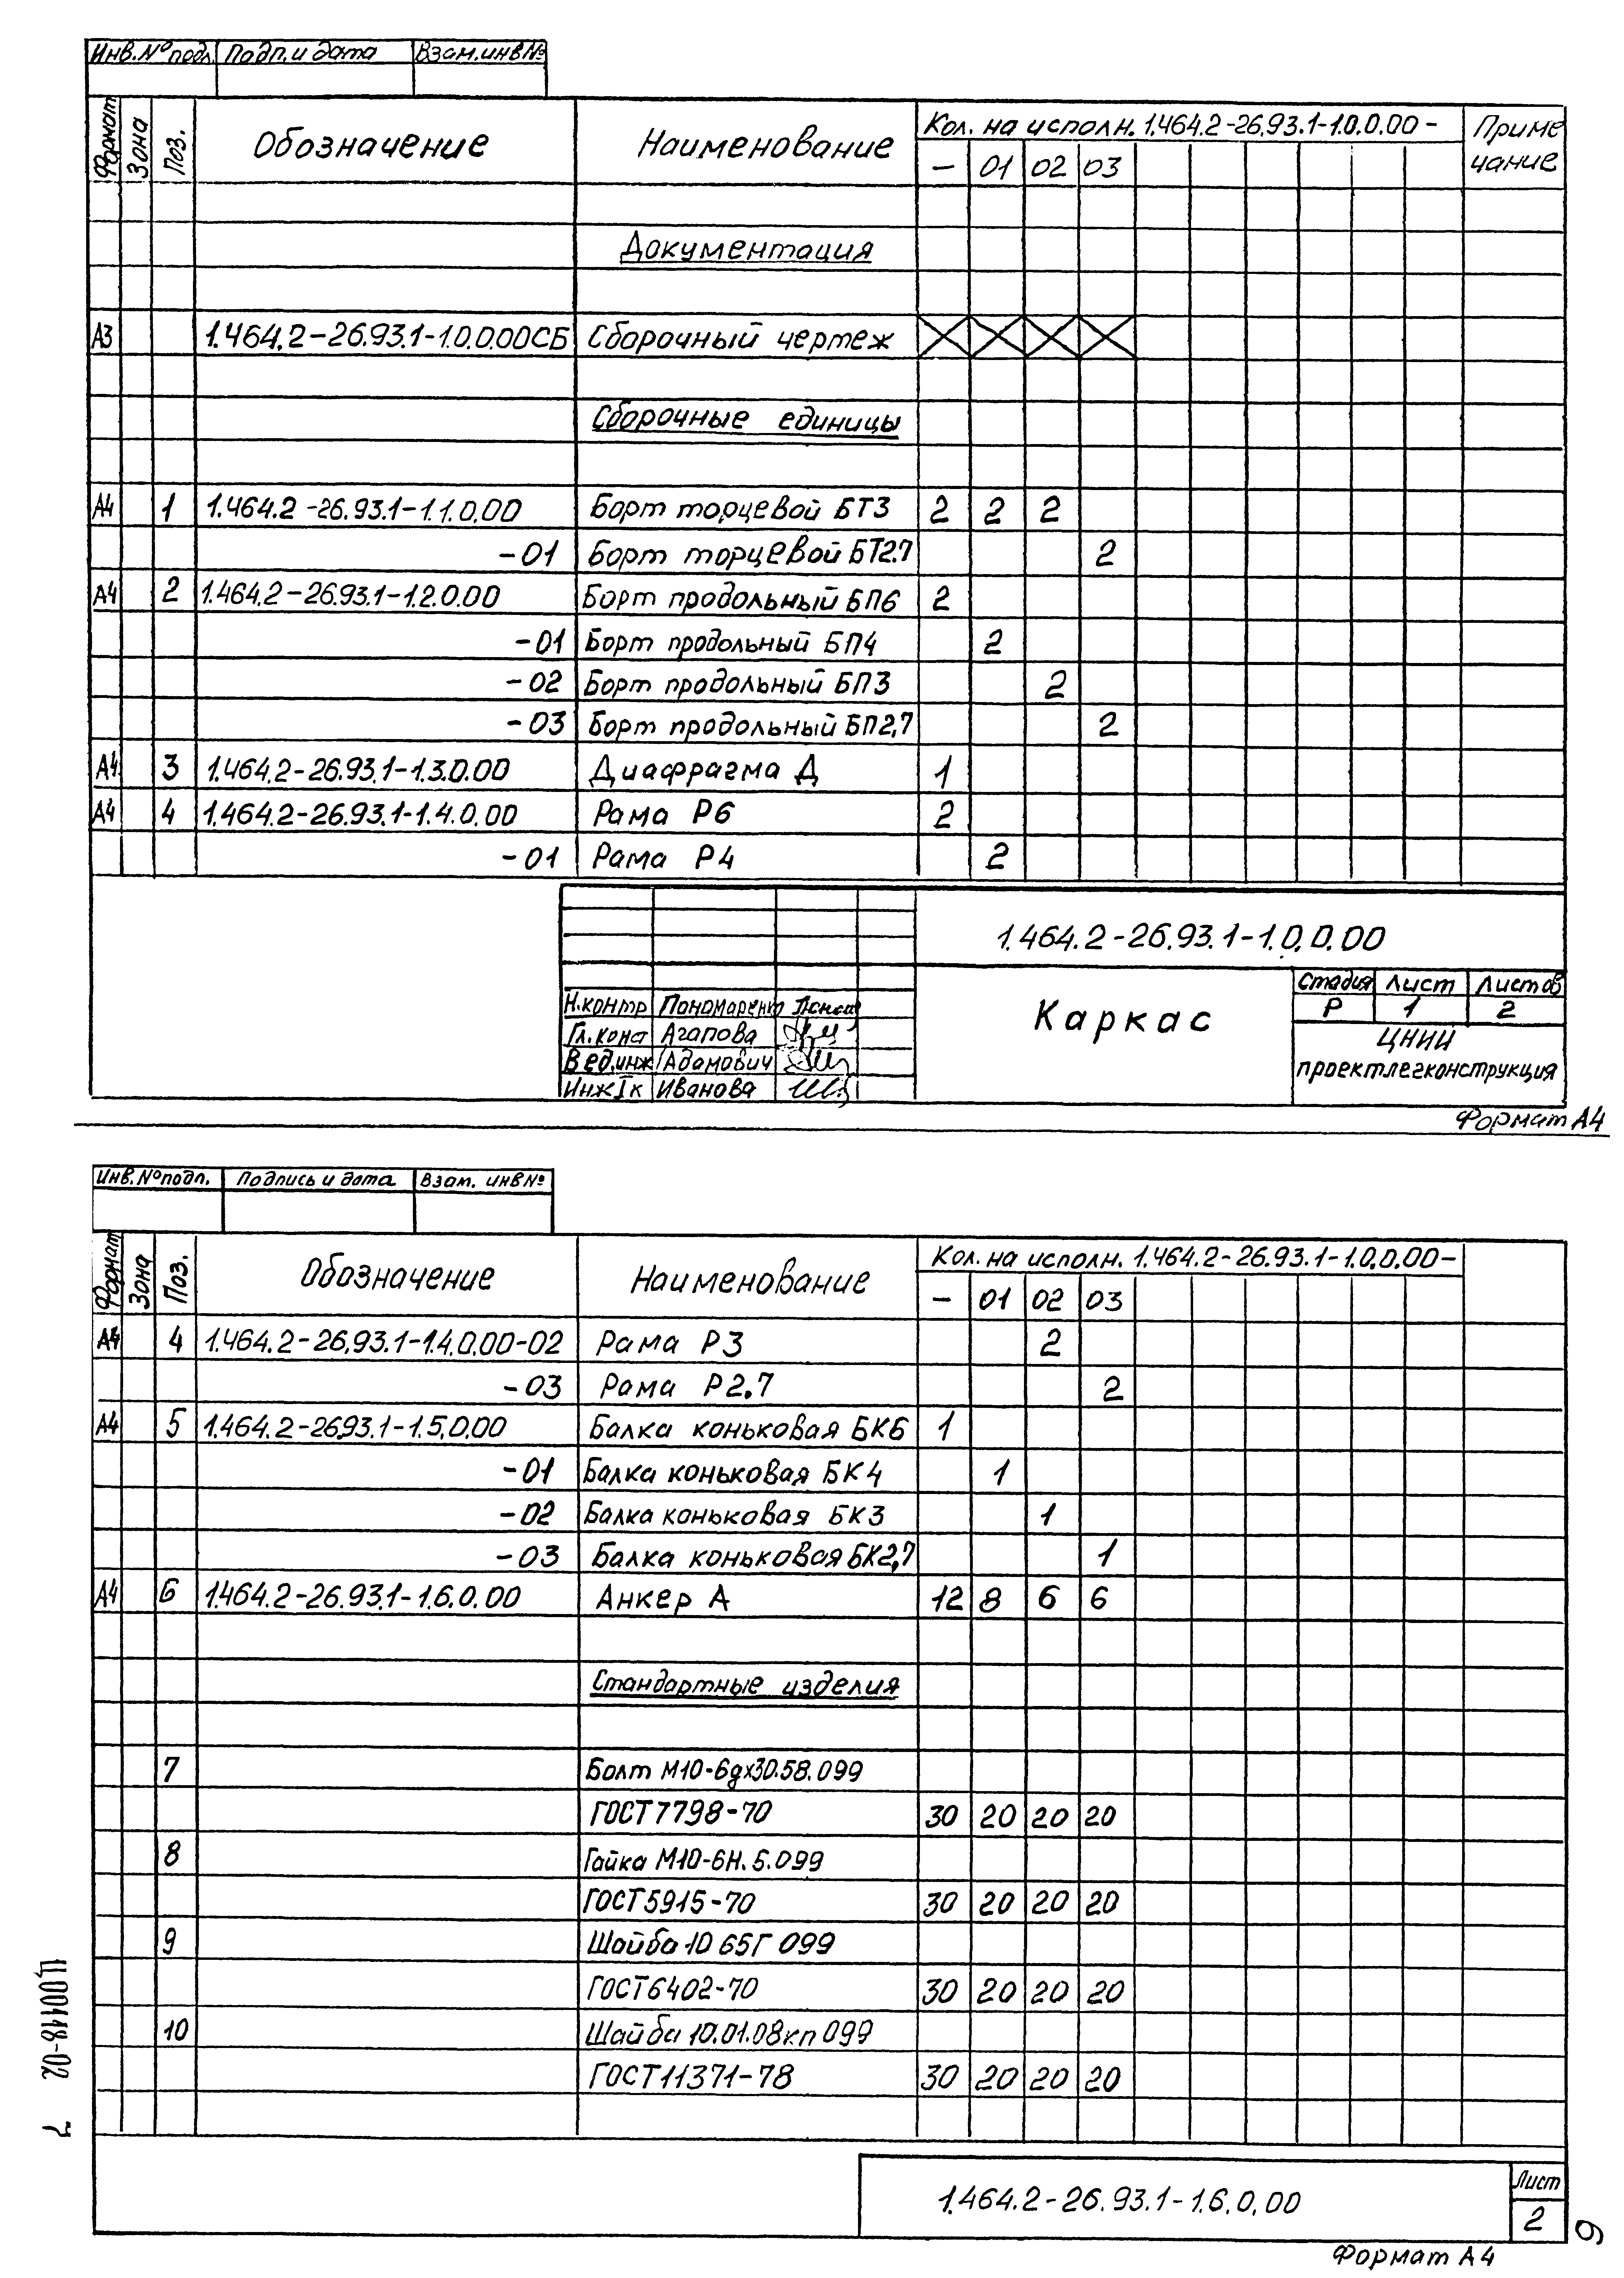 Инв.№ подл. Подп. и дата Взам.инв№
Формат Зона Поз. Обозначение Наименование Кол. на исполн. 1.464.2-26.93.1-1.0.0.00- Приме
чание
- 01 02 03
Документация
А3 1.464.2-26.93.1-1.0.0.00СБ Сборочный чертеж
Сборочные единицы
А4 1 1.464.2-26.93.1-1.1.0.00 Борт торцевой БТ3 2 2 2
-01 Борт торцевой БТ2.7 2
А4 2 1.464.2-26.93.1-1.2.0.00 Борт продольный БП6 2
-01 Борт продольный БП4 2
-02 Борт продольный БП3 2
-03 Борт продольный БП2,7 2
А4 3 1.464.2-26.93.1-1.3.0.00 Диафрагма Д 1
А4 4 1.464.2-26.93.1-1.4.0.00 Рама Р6 2
-01 Рама Р4 2
1.464.2-26.93.1-1.0.0.00
Н.контр Пономаренко
Гл.конс Агапова
Вед.инж Адамович
Инж Iк Иванова
Каркас
Стадия Лист Листов
Р 1 2
ЦНИИ
проектлегконструкция
Формат А4
Инв.№ подл. Подпись и дата Взам. инв№
Формат Зона Поз. Обозначение Наименование Кол. на исполн. 1.464.2-26.93.1-1.0.0.00-
- 01 02 03
А4 4 1.464.2-26.93.1-1.4.0.00-02 Рама Р3 2
-03 Рама Р2.7 2
А4 5 1.464.2-26.93.1-1.5.0.00 Балка коньковая БК6 1
-01 Балка коньковая БК4 1
-02 Балка коньковая БК3 1
-03 Балка коньковая БК2,7 1
А4 6 1.464.2-26.93.1-1.6.0.00 Анкер А 12 8 6 6
Стандартные изделия
7 Болт М10-6gх30.58.099
ГОСТ7798-70 30 20 20 20
8 Гайка М10-6Н.5.099
ГОСТ5915-70 30 20 20 20
9 Шайба 10 65Г 099
ГОСТ6402-70 30 20 20 20
10 Шайба 10.01.08кп 099
ГОСТ11371-78 30 20 20 20
1.464.2-26.93.1-1.6.0.00
Лист
2
Формат А4
Ц00148-02 7
6